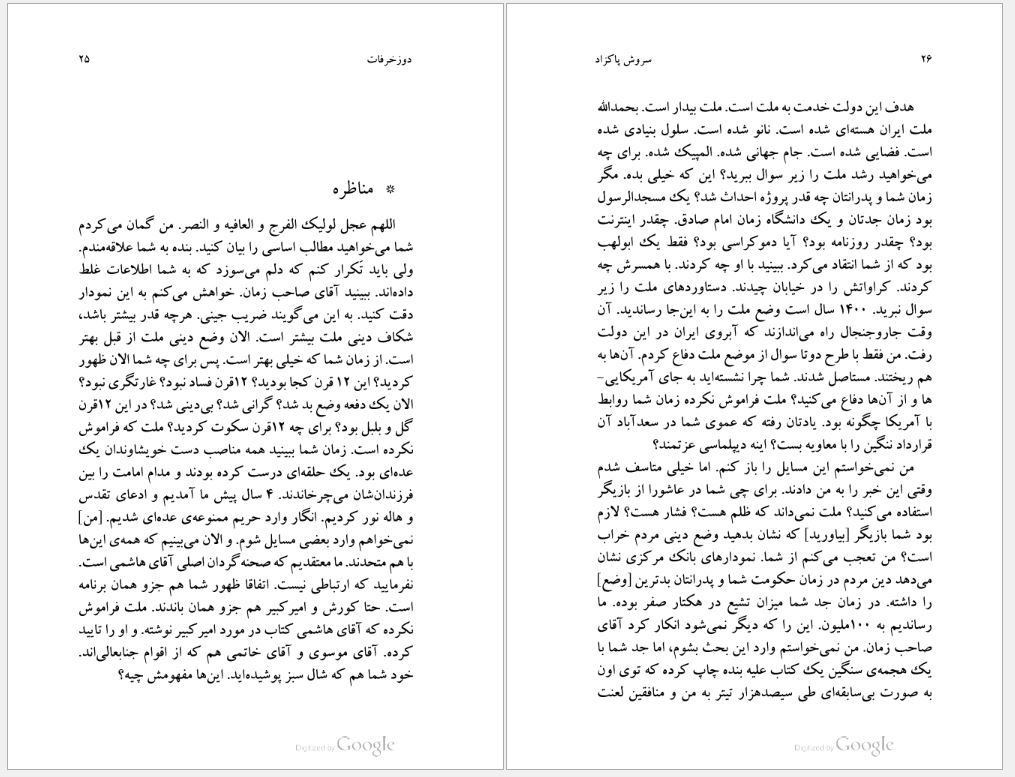 دوزخرفات ۲۵
* مناظره
اللهم عجل لولیک الفرج و العافیه و النصر. من گمان می‌کردم
شما می‌خواهید مطالب اساسی را بیان کنید. بنده به شما علاقه‌مندم.
ولی باید تکرار کنم که دلم می‌سوزد که به شما اطلاعات غلط
داده‌اند. ببینید آقای صاحب زمان. خواهش می‌کنم به این نمودار
دقت کنید. به این می‌گویند ضریب جینی. هرچه قدر بیشتر باشد،
شکاف دینی ملت بیشتر است. الان وضع دینی ملت از قبل بهتر
است. از زمان شما که خیلی بهتر است. پس برای چه شما الان ظهور
کردید؟ این ۱۲ قرن کجا بودید؟ ۱۲قرن فساد نبود؟ غارتگری نبود؟
الان یک دفعه وضع بد شد؟ گرانی شد؟ بی‌دینی شد؟ در این ۱۲قرن
گل و بلبل بود؟ برای چه ۱۲قرن سکوت کردید؟ ملت که فراموش
نکرده است. زمان شما ببینید همه مناصب دست خویشاوندان یک
عده‌ای بود. یک حلقه‌ای درست کرده بودند و مدام امامت را بین
فرزندان‌شان می‌چرخاندند. ۴ سال پیش ما آمدیم و ادعای تقدس
و هاله نور کردیم. انگار وارد حریم ممنوعه‌ی عده‌ای شدیم. [من]
نمی‌خواهم وارد بعضی مسایل شوم. و الان می‌بینیم که همه‌ی این‌ها
با هم متحدند. ما معتقدیم که صحنه‌گردان اصلی آقای هاشمی است.
نفرمایید که ارتباطی نیست. اتفاقا ظهور شما هم جزو همان برنامه
است. حتا کورش و امیرکبیر هم جزو همان باندند. ملت فراموش
نکرده که آقای هاشمی کتاب در مورد امیرکبیر نوشته. و او را تایید
کرده. آقای موسوی و آقای خاتمی هم که از اقوام جنابعالی‌اند.
خود شما هم که شال سبز پوشیده‌اید. این‌ها مفهومش چیه؟
Digitized by Google
۲۶ سروش پاکزاد
هدف این دولت خدمت به ملت است. ملت بیدار است. بحمدالله
ملت ایران هسته‌ای شده است. نانو شده است. سلول بنیادی شده
است. فضایی شده است. جام جهانی شده. المپیک شده. برای چه
می‌خواهید رشد ملت را زیر سوال ببرید؟ این که خیلی بده. مگر
زمان شما و پدرانتان چه قدر پروژه احداث شد؟ یک مسجدالرسول
بود زمان جدتان و یک دانشگاه زمان امام صادق. چقدر اینترنت
بود؟ چقدر روزنامه بود؟ آیا دموکراسی بود؟ فقط یک ابولهب
بود که از شما انتقاد می‌کرد. ببینید با او چه کردند. با همسرش چه
کردند. کراواتش را در خیابان چیدند. دستاوردهای ملت را زیر
سوال نبرید. ۱۴۰۰ سال است وضع ملت را به این‌جا رساندید. آن
وقت جاروجنجال راه می‌اندازند که آبروی ایران در این دولت
رفت. من فقط با طرح دوتا سوال از موضع ملت دفاع کردم. آن‌ها به
هم ریختند. مستاصل شدند. شما چرا نشسته‌اید به جای آمریکایی-
ها و از آن‌ها دفاع می‌کنید؟ ملت فراموش نکرده زمان شما روابط
با آمریکا چگونه بود. یادتان رفته که عموی شما در سعدآباد آن
قرارداد ننگین را با معاویه بست؟ اینه دیپلماسی عزتمند؟
من نمی‌خواستم این مسایل را باز کنم. اما خیلی متاسف شدم
وقتی این خبر را به من دادند. برای چی شما در عاشورا از بازیگر
استفاده می‌کنید؟ ملت نمی‌داند که ظلم هست؟ فشار هست؟ لازم
بود شما بازیگر [بیاورید] که نشان بدهید وضع دینی مردم خراب
است؟ من تعجب می‌کنم از شما. نمودارهای بانک مرکزی نشان
می‌دهد دین مردم در زمان حکومت شما و پدرانتان بدترین [وضع]
را داشته. در زمان جد شما میزان تشیع در هکتار صفر بوده. ما
رساندیم به ۱۰۰ملیون. این را که دیگر نمی‌شود انکار کرد آقای
صاحب زمان. من نمی‌خواستم وارد این بحث بشوم، اما جد شما با
یک هجمه‌ی سنگین یک کتاب علیه بنده چاپ کرده که توی اون
به صورت بی‌سابقه‌ای طی سیصدهزار تیتر به من و منافقین لعنت
Digitized by Google